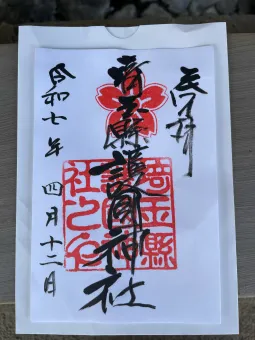 奉拝
埼玉縣護國神社
令和七年 四月十二日
埼玉縣
社之印